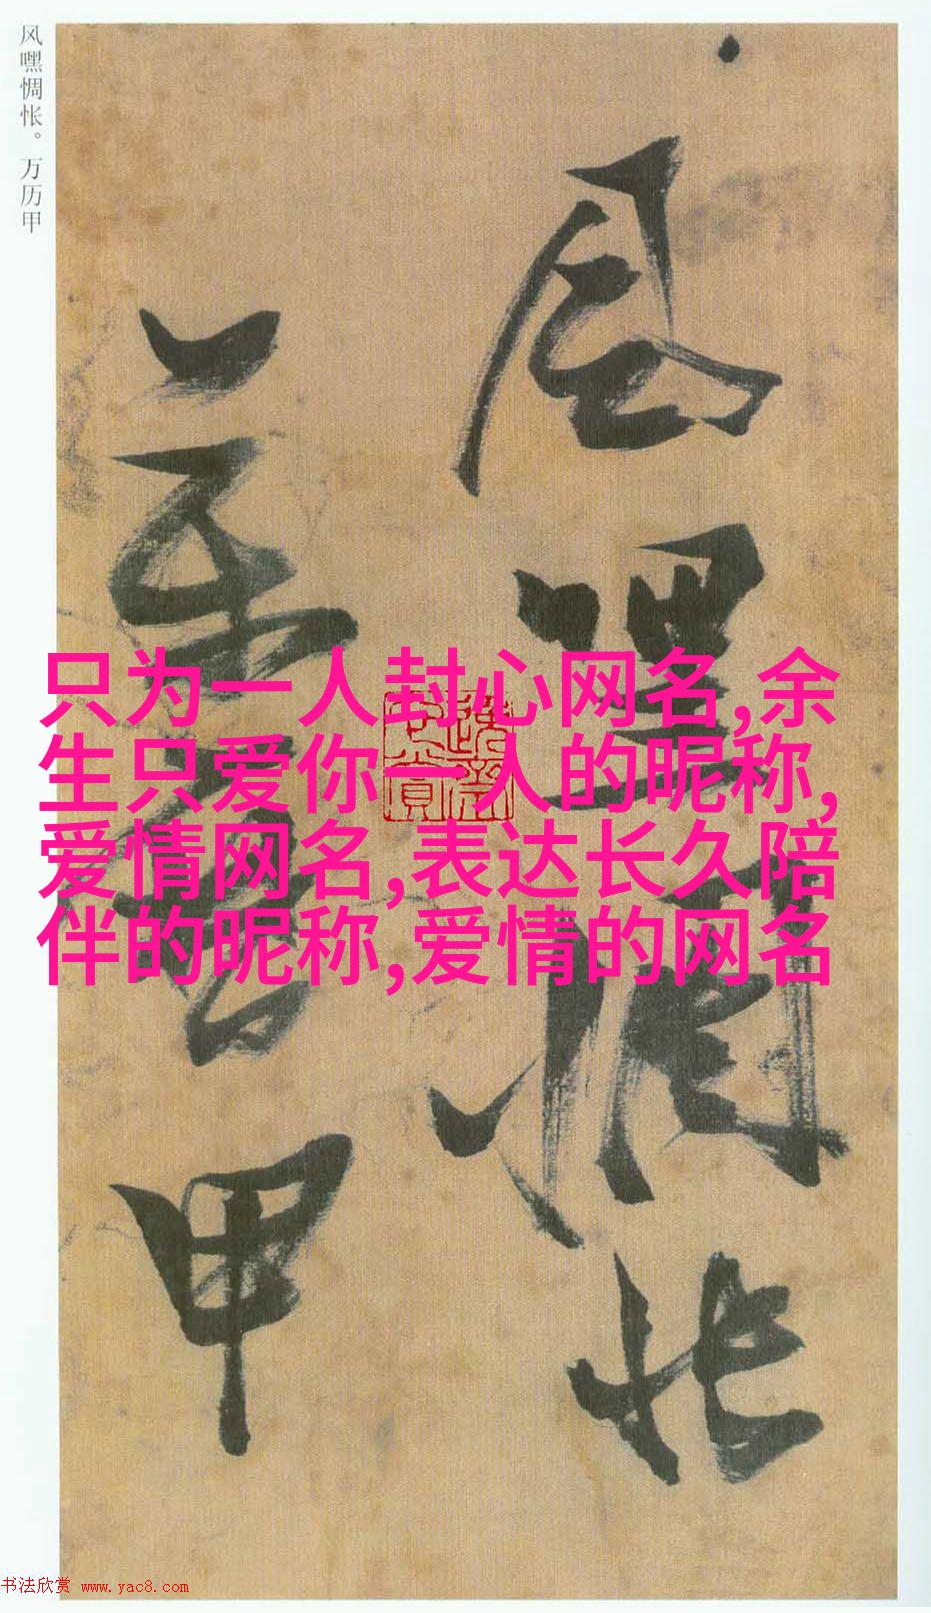 风嘿惆怅。万历甲
风嘿惆怅
万历甲
只为一人封心网名,余
生只爱你一人的昵称,
爱情网名,表达长久陪
伴的昵称,爱情的网名
书法欣赏 www.yac8.com